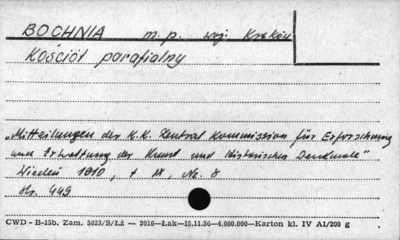 BOCHNIA m.p. woj. Kraków
Kościół parafialny
„Mitteilungen der K.K. Zentral Kommission für Erforschung
und Erhaltung der Kunst und Historischen Denkmale"
Wiedeń 1910, t IX, No. 8
str. 449
CWD - B-15b. Zam. 5823/S/Łź — 3016—Łak—15.11.56—4.000.000—Karton kl. IV A1/200 g